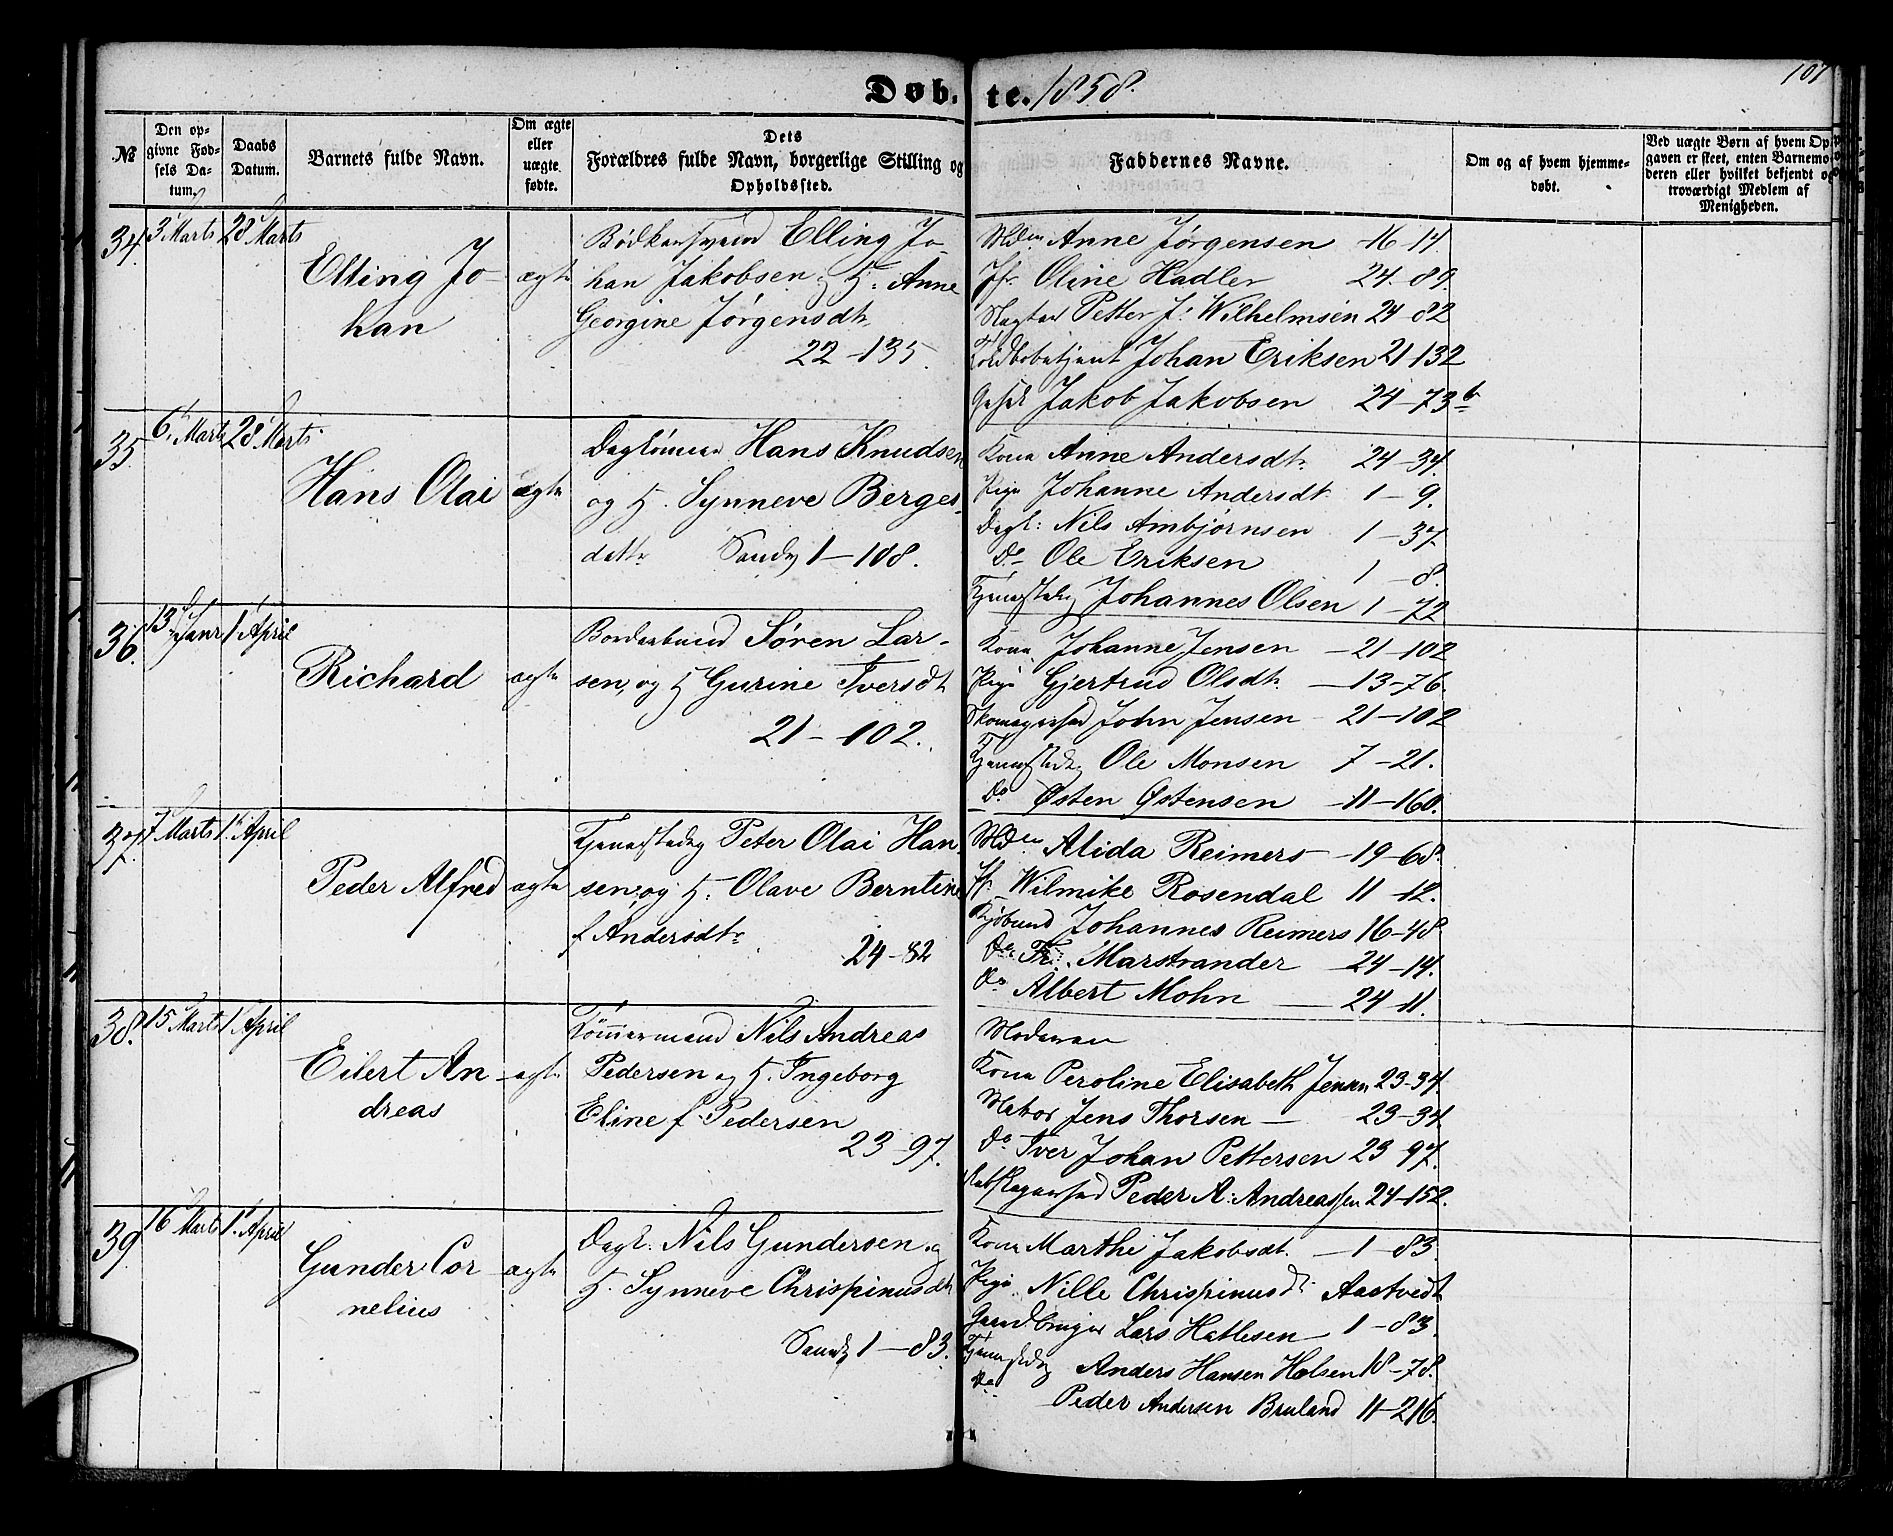 107
Døbte. 1858.
№
Den op-
givne Fød-
sels Da-
tum.
Daabs
Datum.
Barnets fulde Navn.
Om ægte
eller
uægte
fødte.
Dets
Forældres fulde Navn, borgerlige Stilling og
Opholdssted.
Faddernes Navne.
Om og af hvem hjemme-
døbt.
Ved uægte Børn af hvem Op-
gaven er skeet, enten Barnemo-
deren eller hvilket bekjendt og
troværdigt Medlem af
Menigheden.
34. 3 Marts 28 Marts
Elling Jo-
han
ægte
Bødkersvend Elling Jo-
han Jakobsen og H: Anne
Georgine Jørgensdt.
22-135.
Mdm Anne Jørgensen 16-14.
Jfr. Oline Hadler 24-89.
Petter J: Wilhelmsen 24-82
Toldbobetjent Johan Eriksen 21-132
Jakob Jakobsen 24-73 b
35. 6 Marts 28 Marts
Hans Olai
ægte
Daglønner Hans Knudsen
og H. Synneve Berges-
datter Sandv 1-108.
Kone Anne Andersdt. 24-34.
Pige Johanne Andersdt 1-9.
Dagl: Nils Ambjørnsen 1-37
Do Ole Eriksen 1-8.
Tjenestekg Johannes Olsen 1-72
36. 13 Janr 1 April
Richard
ægte
Søren Lar-
sen, og H Gurine Iversdt
21-102.
Kone Johanne Jensen 21-102
Pige Gjertrud Olsdt. 13-76.
Skomagersvd John Jensen 21-102
Tjenestekg Ole Monsen 7-21.
Do Østen Østensen 11-160.
37. 7 Marts 1 April
Peder Alfred
ægte
Tjenestekg Peter Olai Han-
sen, og H: Olave Berntine
f Andersdtr
24-82
Mdm Alida Reimers 19-68.
Jfr. Wilmike Rosendal 11-12.
Kjøbmd Johannes Reimers 16-48
Do Fr. Marstrander 24-14.
Do Albert Mohn 24-11.
38. 15 Marts 1 April
Eilert An
dreas
ægte
Tømmermand Nils Andreas
Pedersen og H. Ingeborg
Eline f. Pedersen
23-97.
Moderen
Kone Peroline Elisabeth Jensen 23-34
Jens Thorsen 23-34
Do Iver Johan Pettersen 23-97.
Peder A: Andreassen 24-152.
39 16 Marts 1 April
Gunder Cor
nelius
ægte
Dagl: Nils Gundersen og
H. Synneve Chrispinusdt
Sandv 1-83.
Kone Marthe Jakobsdt. 1-83
Pige Nille Chrispinusdt Aastvedt
Gaardbruger Lars Hatlesen 1-83.
Tjenestekg Anders Hansen Holsen 18-78.
Do Peder Andersen Bruland 11-216.